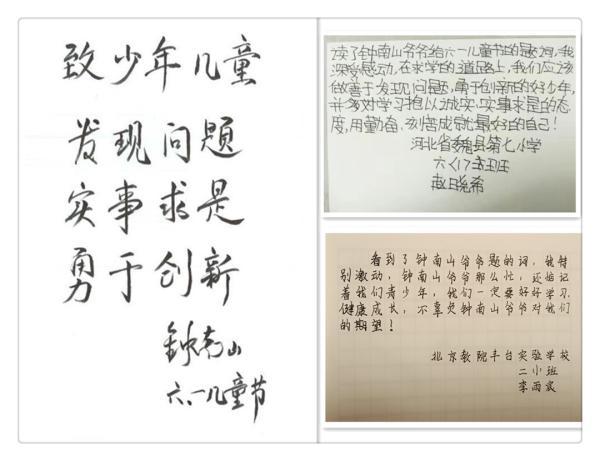 致少年儿童
发现问题
实事求是
勇于创新
钟南山
六.一儿童节
读了钟南山爷爷给六一儿童节的题词,我
深受感动,在求学的道路上,我们应该
做善于发现问题,勇于创新的好少年,
并多对学习抱以诚实、实事求是的态
度,用勤奋、刻苦成就最好的自己!
河北省魏县第七小学
六〈17〉班
赵晓希
看到了钟南山爷爷题的词,我特
别激动,钟南山爷爷那么忙,还惦记
着我们青少年,我们一定要好好学习
健康成长,不辜负钟南山爷爷对我们
的期望!
北京教院丰台实验学校
二小班
李雨宸